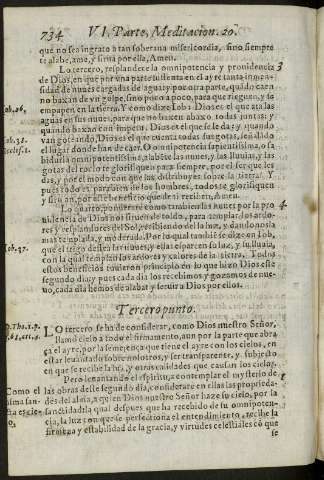 734 VI. Parte, Meditacion. 20.
que no sea ingrato à tan soberana misericordia, sino siempre
te alabe, ame, y sirua por ella, Amen.
Lo tercero, resplandece la omnipotencia y prouidencia 3
de Dios, en que por vna parte sustenta en el ayre tanta inmen-
sidad de nuues cargadas de agua; y por otra parte, quando caen
no baxan de golpe, sino poco a poco, para que rieguen, y se
empapen en la tierra. Y como dize Iob: Dios es el que ata las
aguas en sus nuues, para que no baxen abaxo todas juntas: y
quando baxan con impetu, Dios es el que se le da: y quando
van goteando, Dios es el que cuenta todas sus gotas, señalado
el lugar donde han de caer. O omnipotencia sapientissima, o sa-
biduria omnipotentissima, alabente las nuues, y las lluuias, y las
gotas del rocio te glorifiquen para siempre, por el ser que les
das, y por el modo con que las distribuyes sobre la tierra. Y
pues todo es para bien de los hombres, todos te glorifiquen
y siruan, por este beneficio que de ti reciben, Amen.
Lo quarto, ponderarè como tambien las nuues por la pro 4
uidencia de Dios nos siruen de toldo, para templar los ardo-
res y resplandores del Sol, recibiendo del la luz, y dandonosla
mas templada, y moderada. Por lo qual tambien se dize en Iob,
que el trigo dessea las nuues, y ellas esparcen su luz, y su lluuia,
con la qual templan los ardores y calores de la tierra. Todos
estos beneficios tuuieron principio en lo que hizo Dios este
segundo dia; y pues cada dia los recebimos y gozamos de nue-
uo, cada dia hemos de alabar y seruir a Dios por ellos.
Tercero punto.
LO tercero se ha de considerar, como Dios nuestro Señor,
llamò cielo a todo el firmamento, aun por la parte que abra
ça el ayre, por la semejança que tiene el ayre con los cielos, en
estar leuantado sobre nosotros, y ser transparente, y subjecto
en que se recibe la luz, y otras calidades que causan los cielos.
Pero leuantando el espiritu, a contemplar el mysterio de
las obras deste segundo dia, considerarè en ellas las proprieda-
des del alma, a quien Dios nuestro Señor haze su cielo, por la
santidad: la qual despues que ha recebido de su omnipoten-
cia, la luz con que se perfecciona el entendimiento, recibe la
firmeza y estabilidad de la gracia, y virtudes celestiales cō que
se
Iob. 26.
Iob. 38.
Eccles. 1.
Iob. 37.
D. Tho. 1. p.
Como el